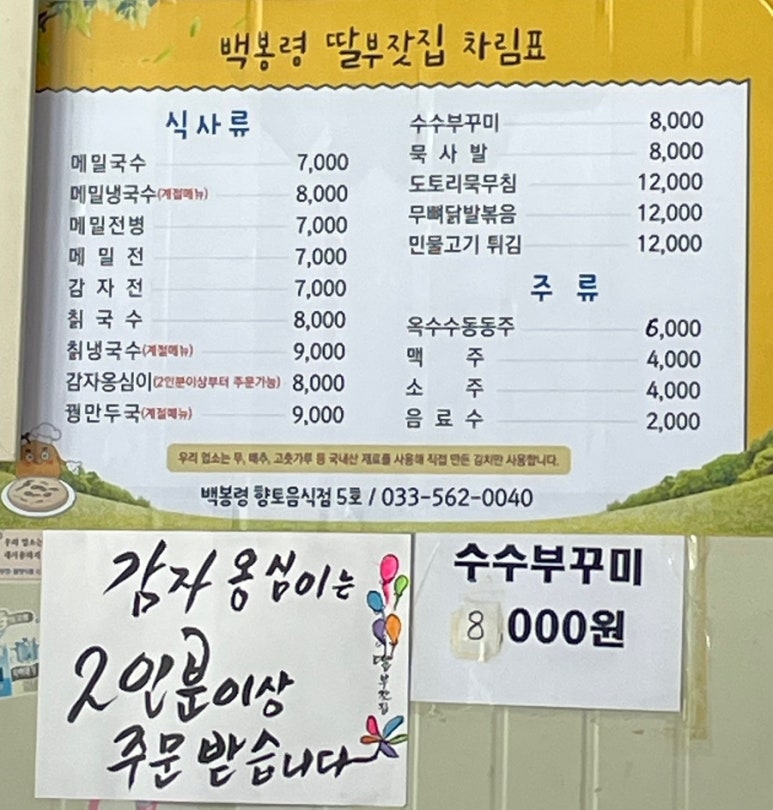 백봉령 딸부잣집 차림표
식사류
메밀국수 7,000
메밀냉국수(계절메뉴) 8,000
메밀전병 7,000
메 밀 전 7,000
감 자 전 7,000
칡 국 수 8,000
칡냉국수(계절메뉴) 9,000
감자옹심이(2인분이상부터 주문가능) 8,000
꿩만두국(계절메뉴) 9,000
수수부꾸미 8,000
묵 사 발 8,000
도토리묵무침 12,000
무뼈닭발볶음 12,000
민물고기 튀김 12,000
주 류
옥수수동동주 6,000
맥 주 4,000
소 주 4,000
음 료 수 2,000
우리 업소는 무, 배추, 고춧가루 등 국내산 재료를 사용해 직접 만든 김치만 사용합니다.
백봉령 향토음식점 5호 / 033-562-0040
우리 업소는
감자옹심이는
2인분이상
주문받습니다
딸부잣집
수수부꾸미
8,000원